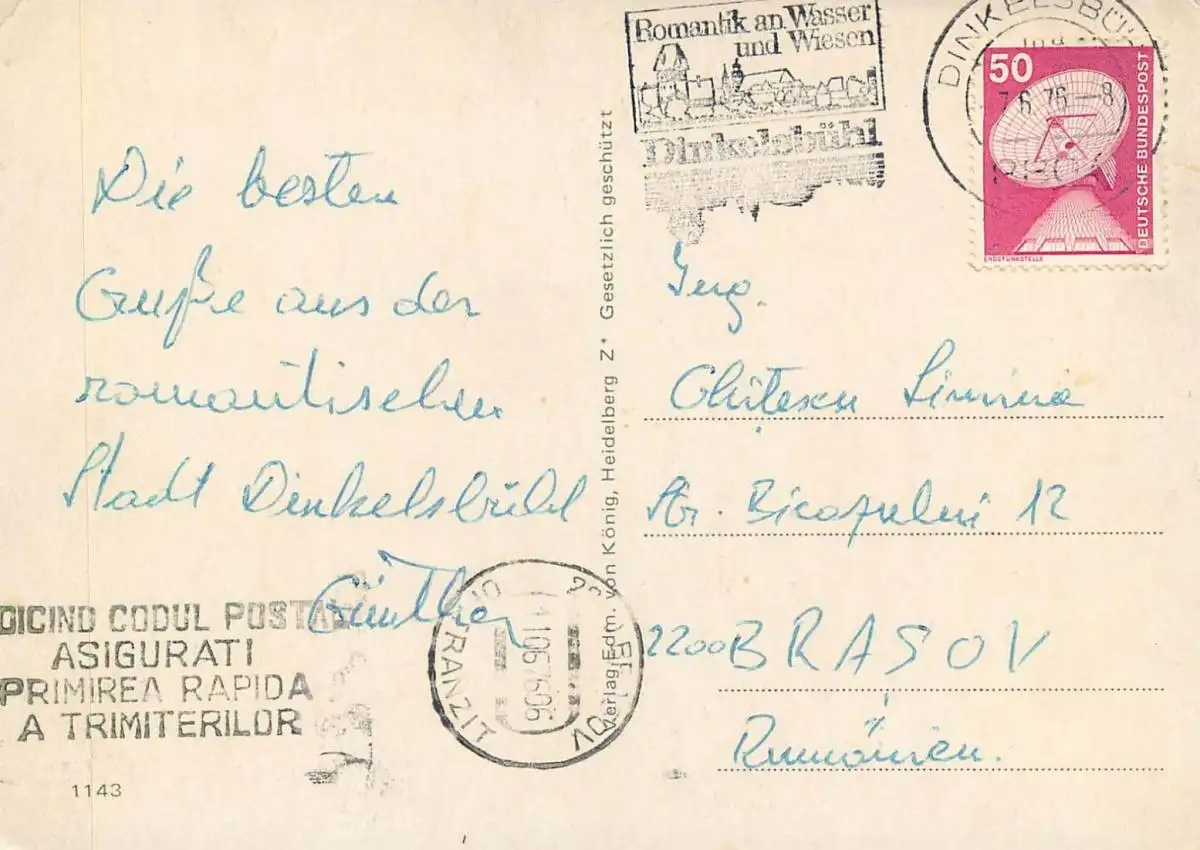 Romantik an Wasser
und Wiesen
Dinkelsbühl
DINKELSBÜHL
7.6.76-8
50
DEUTSCHE BUNDESPOST
ERDEFUNKSTELLE
Die besten
Grüße aus der
romantischen
Stadt Dinkelsbühl
Günther
Verlag Edm. von König, Heidelberg Z* Gesetzlich geschützt
Ing.
Ghitescu
Str. 12
2200 BRASOV
Rumänien.
DICIND CODUL POSTAL
ASIGURATI
PRIMIREA RAPIDA
A TRIMITERILOR
TRANZIT
11067606
1143